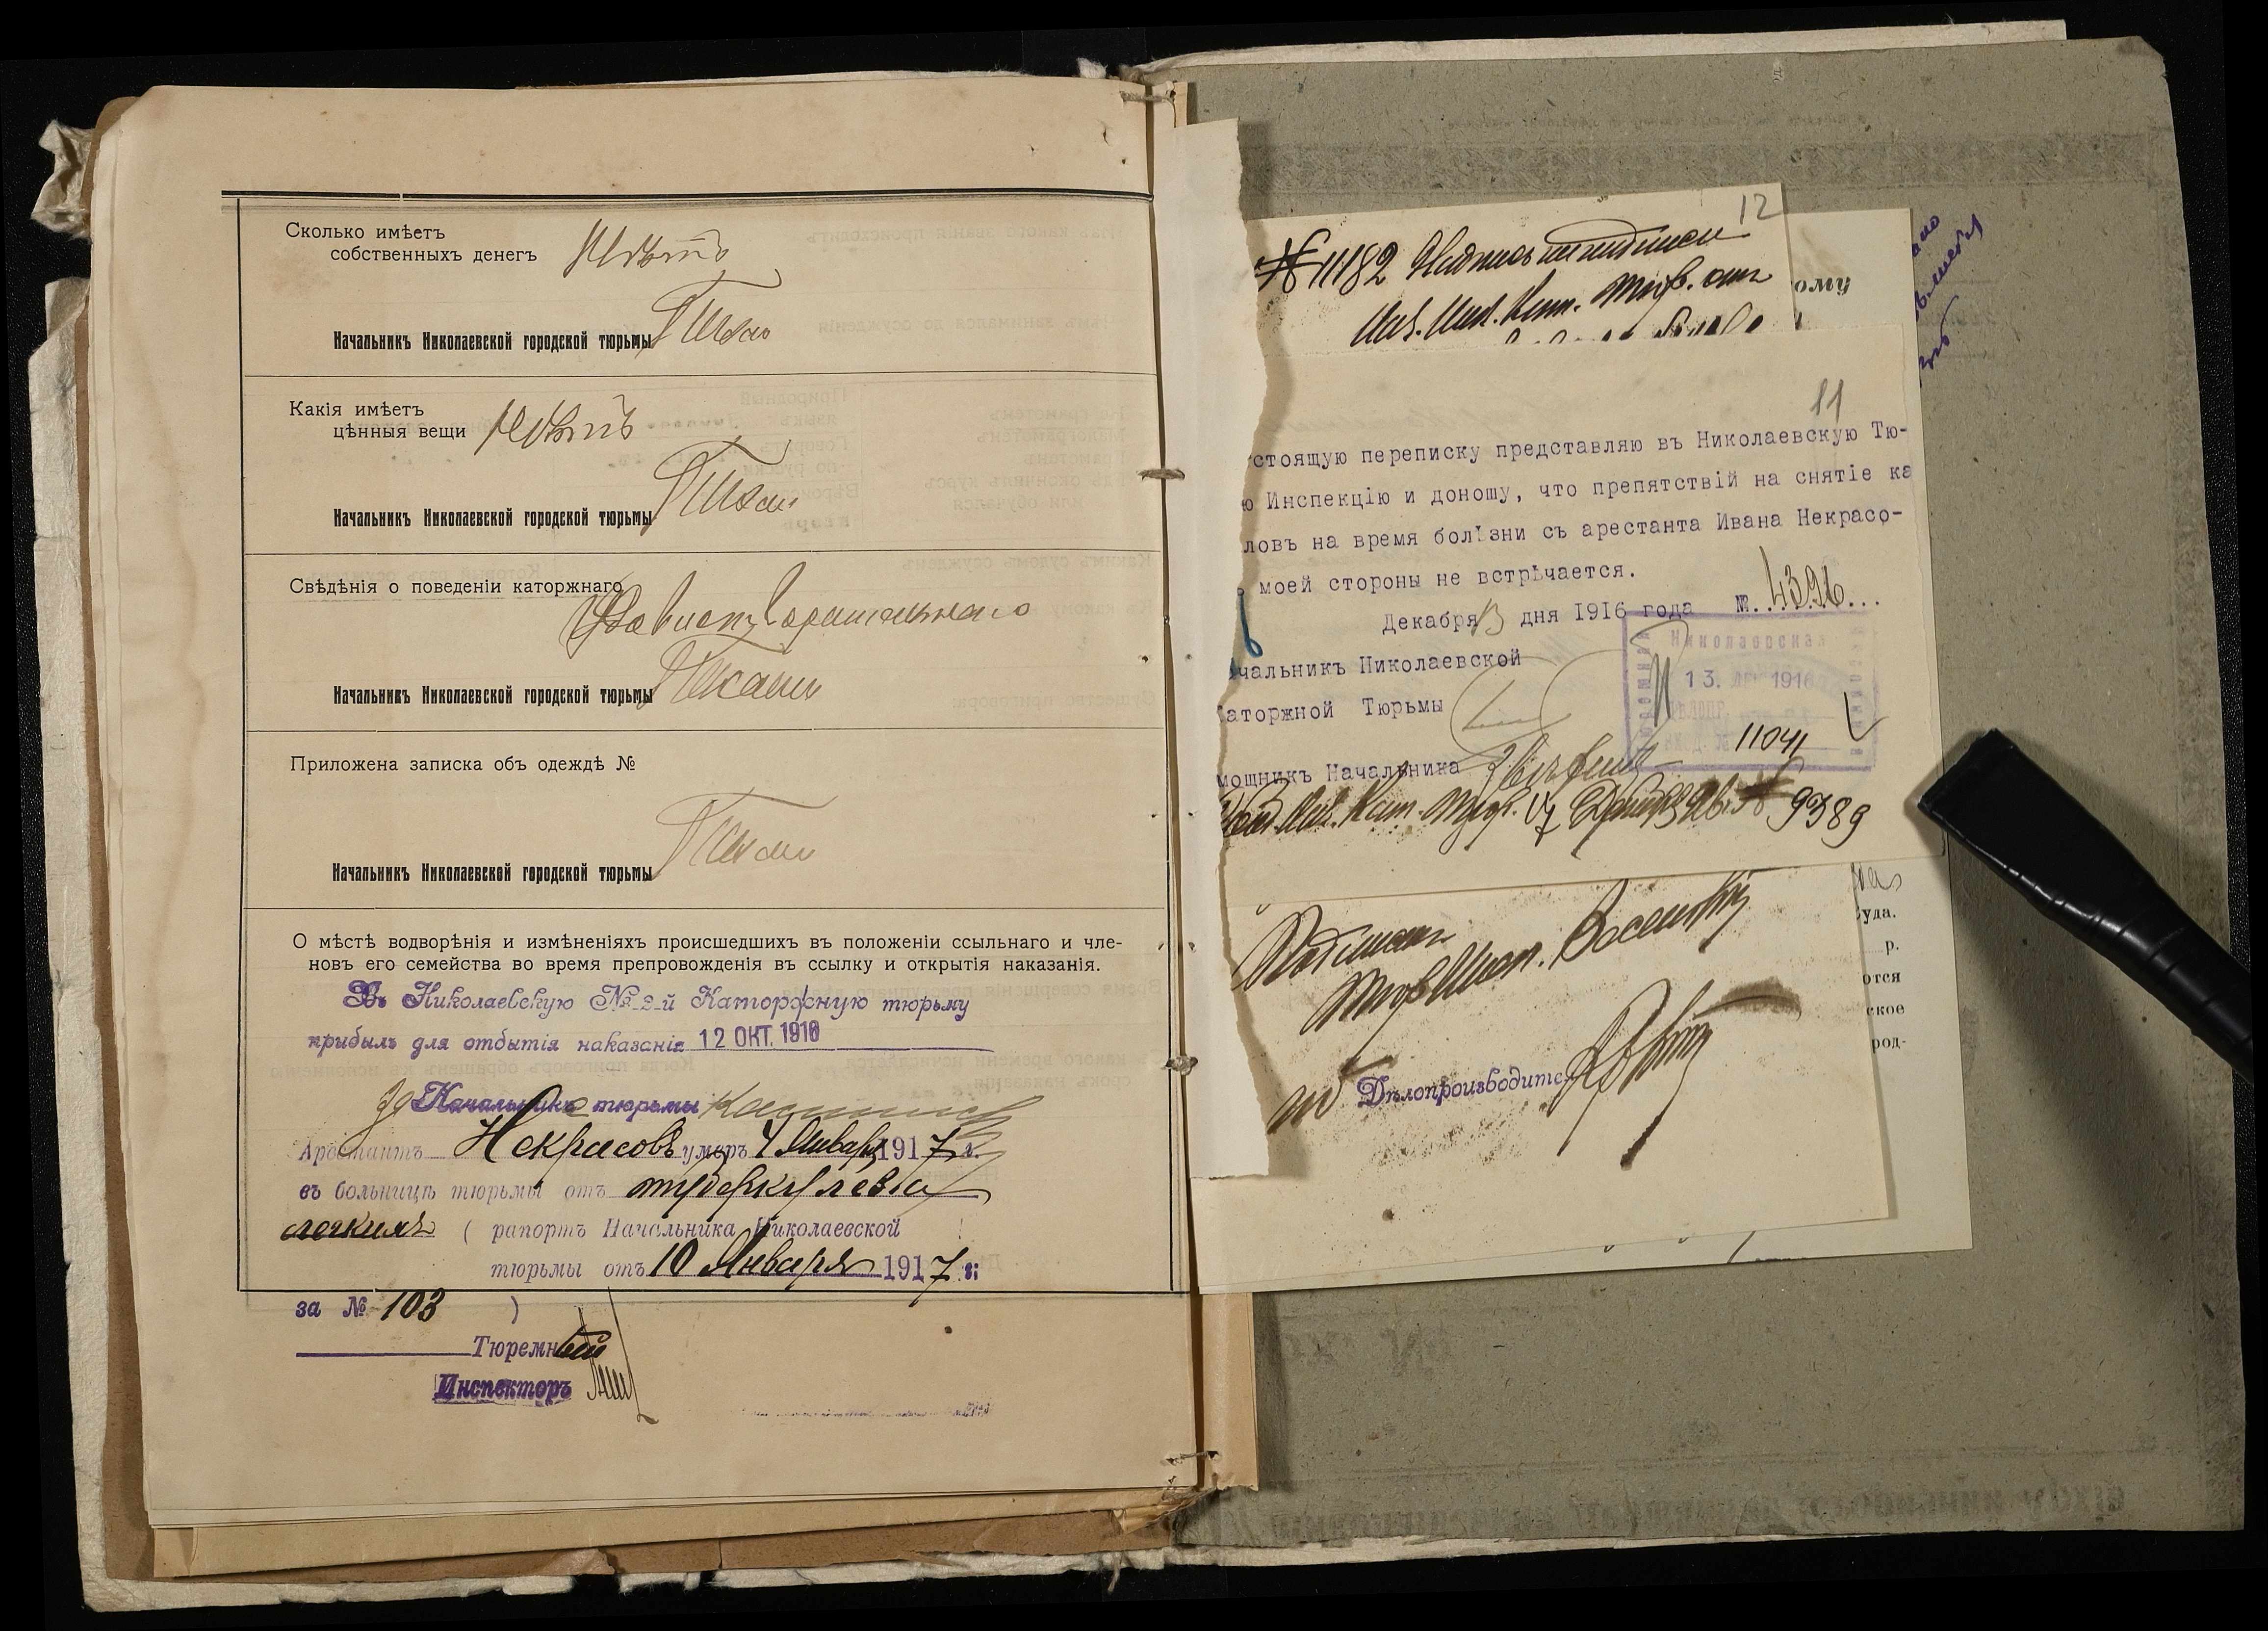 Сколько имѣетъ
собственныхъ денегъ Нѣтъ
Начальникъ Николаевской городской тюрьмы
Какія имѣетъ
цѣнныя вещи Нѣтъ
Начальникъ Николаевской городской тюрьмы
Свѣдѣнія о поведеніи каторжнаго
Удовлетворительнаго
Начальникъ Николаевской городской тюрьмы
Приложена записка объ одеждѣ №
Начальникъ Николаевской городской тюрьмы
О мѣстѣ водворѣнія и измѣненіяхъ происшедшихъ въ положеніи ссыльнаго и чле-
новъ его семейства во время препровожденія въ ссылку и открытія наказанія.
Въ Николаевскую № 2-й Каторжную тюрьму
прибылъ для отбытія наказанія 12 ОКТ. 1916
Начальникъ тюрьмы
Арестантъ Некрасовъ умеръ 4 Января 1917 г.
въ больницѣ тюрьмы отъ туберкулеза
легкихъ ( рапортъ Начальника Николаевской
тюрьмы отъ 10 Января 1917 г.
за № 103 )
Тюремный
Инспекторъ
12
№ 11182
Ник. Кат. тюр.
ому
11
стоящую переписку представляю въ Николаевскую Тю-
ю Инспекцію и доношу, что препятствій на снятіе ка
ловъ на время болѣзни съ арестанта Ивана Некрасо-
моей стороны не встрѣчается.
Декабря 13 дня 1916 года №. 4396...
чальникъ Николаевской
аторжной Тюрьмы
мощникъ Начальника
Николаевская
13. ДЕК 1916
11041
Ник. Кат. тюр. 9389
уда.
р.
отся
ское
род-
Дѣлопроизводит